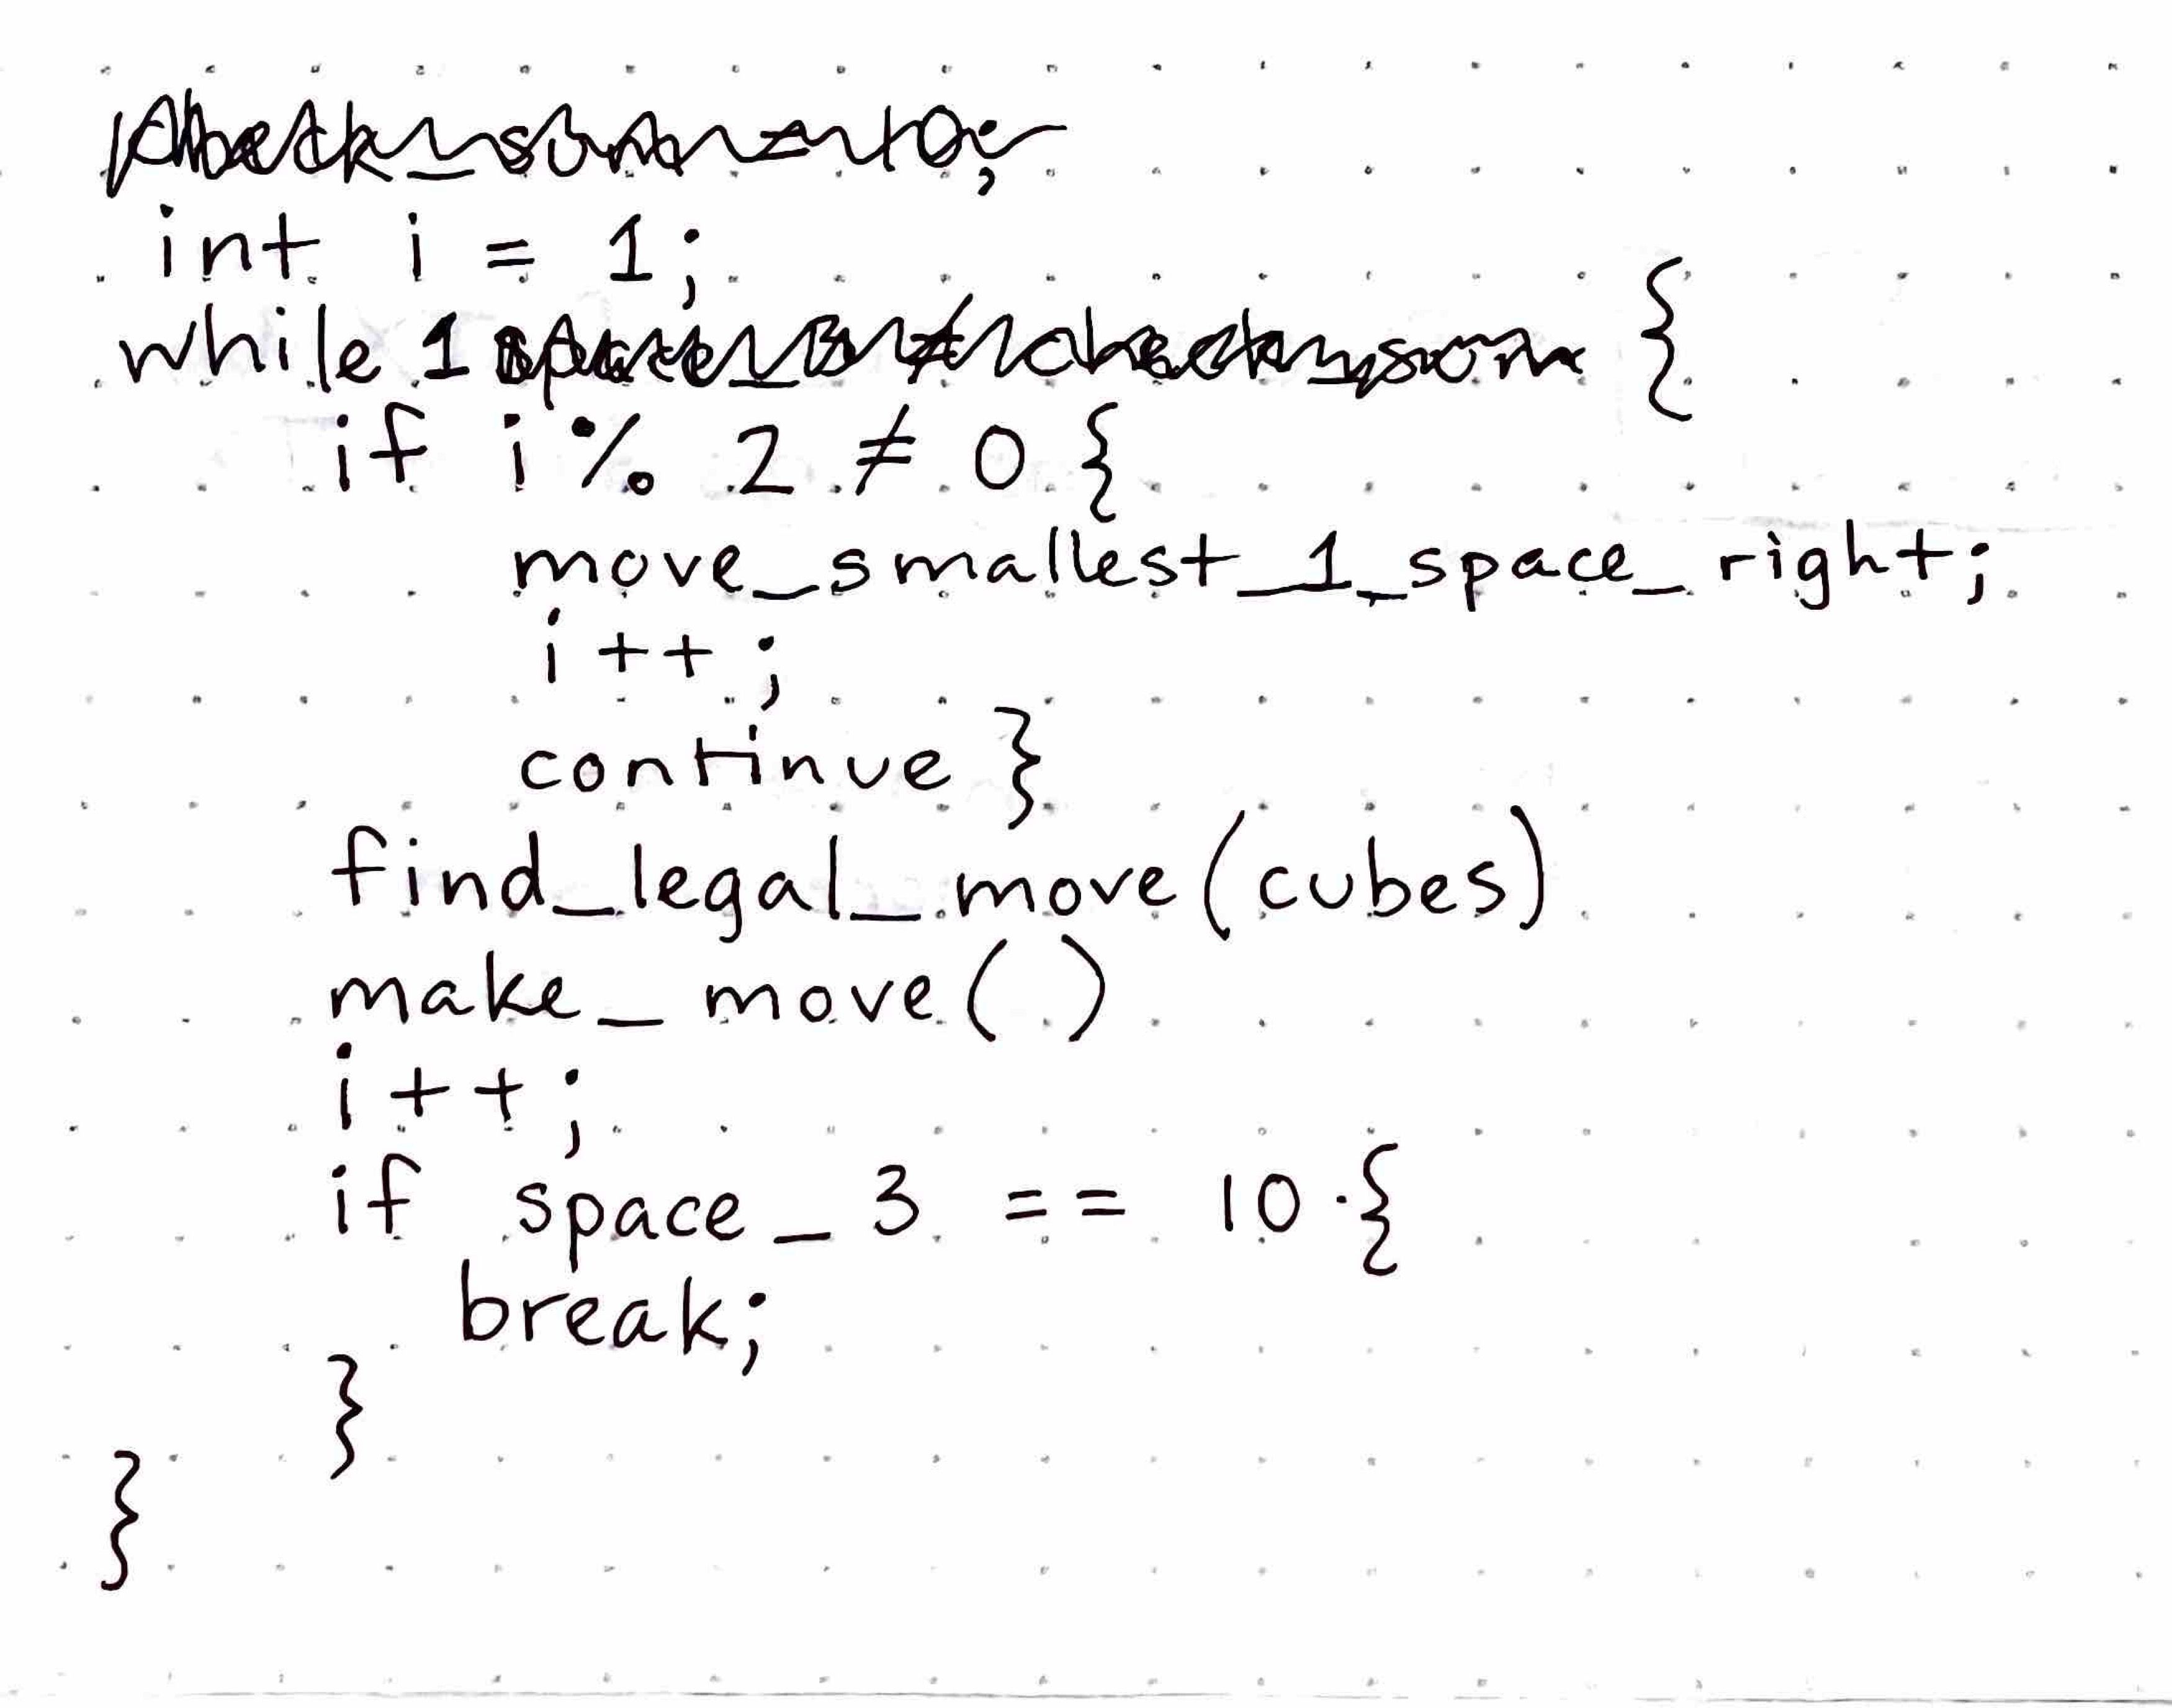 int i = 1;
while 1 {
if i % 2 ≠ 0 {
move_smallest_1_space_right;
i++;
continue }
find_legal_move(cubes)
make_move()
i++;
if space_3 == 10 {
break;
}
}